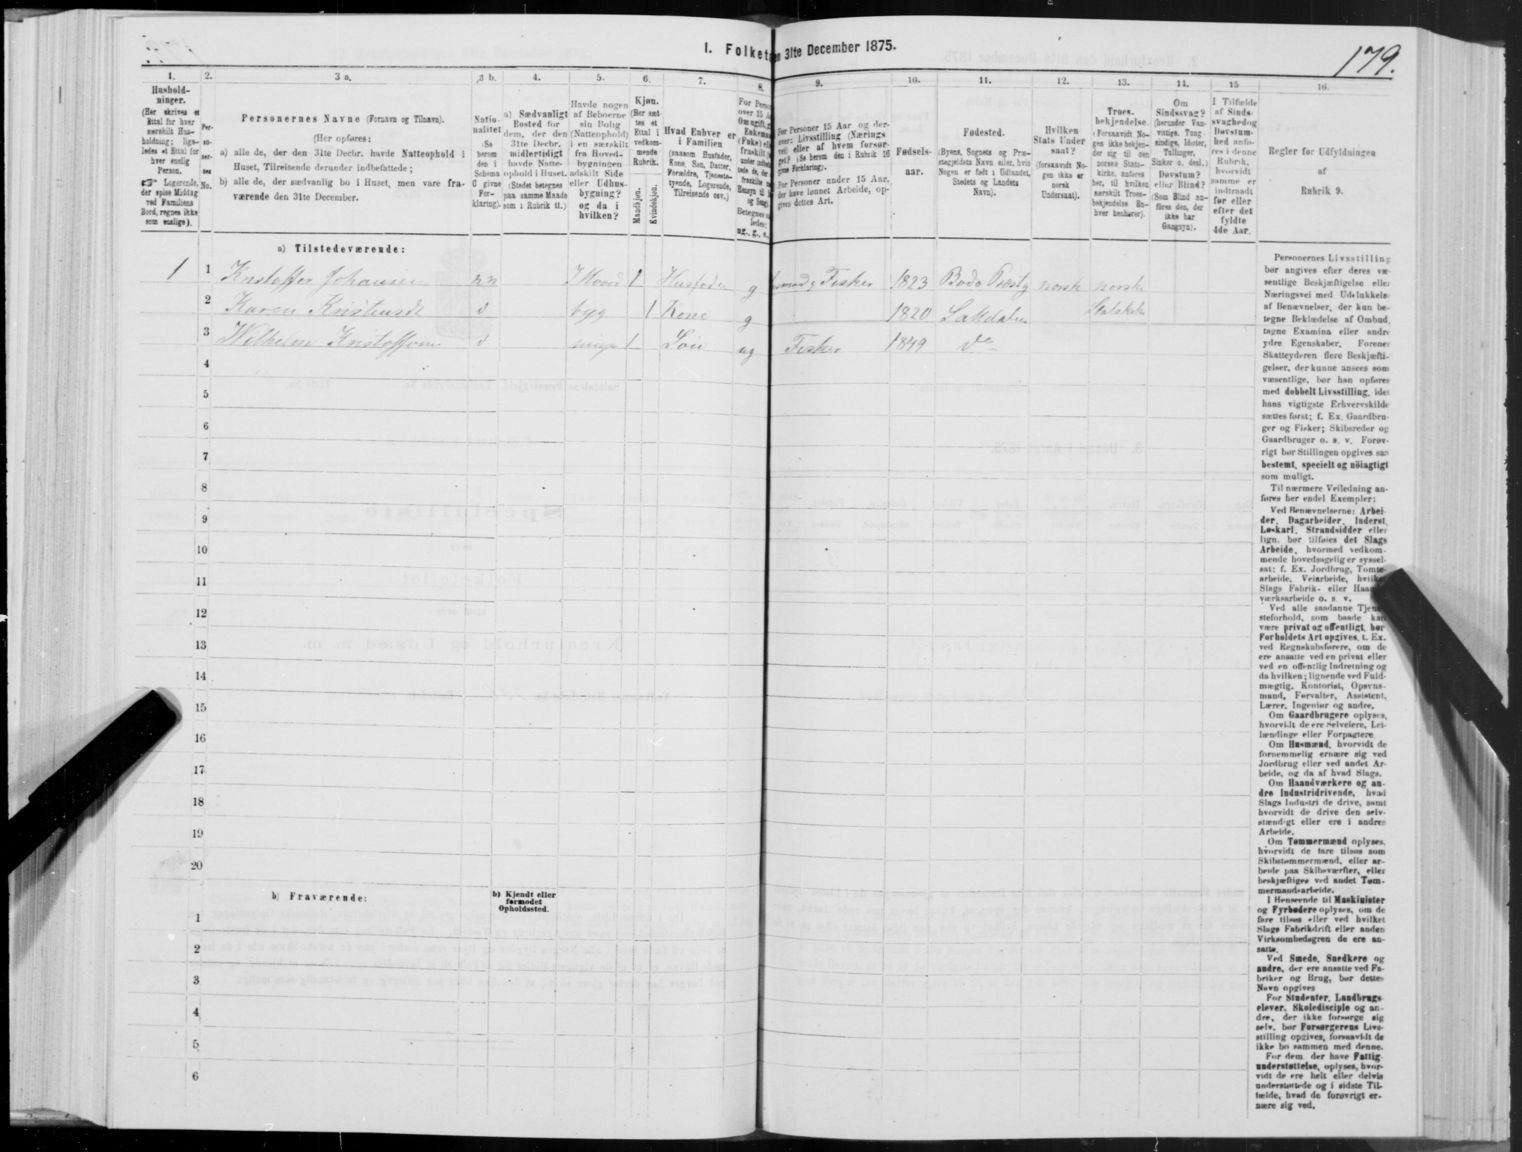 I. Folketæ
n 31te December 1875.
179.
1.
2.
3 a.
3 b.
4.
5.
6.
7.
8.
9.
10.
11.
12.
13.
14.
15
16.
Hushold-
ninger.
(Her skrives et
Ettal for hver
særskilt Hus-
holdning; lige-
ledes et Ettal for
hver enslig
Person.
☞ Logerende,
der spise Middag
ved Familiens
Bord, regnes ikke
som enslige).
Per-
so-
ner-
nes
No.
Personernes Navne (Fornavn og Tilnavn).
(Her opføres:
a) alle de, der den 31te Decbr. havde Natteophold i
Huset, Tilreisende derunder indbefattede;
b) alle de, der sædvanlig bo i Huset, men vare fra-
værende den 31te December.
Natio-
nalitet
(Se
herom
den i
Schema
C givne
For-
klaring).
a) Sædvanligt
Bosted for
dem, der den
31te Decbr.
midlertidigt
havde Natte-
ophold i Huset.
(Stedet betegnes
paa samme Maade
som i Rubrik 11.)
Havde nogen
af Beboerne
sin Bolig
(Natteophold)
i en særskilt
fra Hoved-
bygningen
adskilt Side
eller Udhus-
bygning?
og da i
hvilken?
Kjøn.
(Her sæt-
tes et
Ettal i
vedkom-
mende
Rubrik.
Mandkjøn.
Kvindekjøn.
Hvad Enhver er
i Familien
(saasom Husfader,
Kone, Søn, Datter,
Forældre, Tjeneste-
tyende, Logerende,
Tilreisende osv.)
For Perso
over 15 A
Om ugift, g
Enkema
(Fuke) el
fraskilt
Betegnes s
ledes:
ug., g., e.,
For Personer 15 Aar og der-
over: Livsstilling (Nærings
vei) eller af hvem forsør-
get? (Se herom den i Rubrik 16
givne Forklaring).
For Personer under 15 Aar,
der have lønnet Arbeide, op-
gives dettes Art.
Fødsels-
aar.
Fødested.
(Byens, Sognets og Præ-
stegjeldets Navn eller, hvis
Nogen er født i Udlandet,
Stedets og Landets
Navn).
Hvilken
Stats Under
saat?
(forsaavidt No-
gen ikke er
norsk
Undersaat).
Troes-
bekjendelse.
(Forsaavidt No-
gen ikke bekjen-
der sig til den
norske Stats-
kirke, anføres
her, til hvilken
særskilt Troes-
bekjendelse En-
hver henhører).
Om
Sindssvag?
(herunder Van-
vittige, Tung-
sindige, Idioter,
Tullinger,
Sinker o. desl.)
Døvstum?
eller Blind?
(Som Blind an-
føres den, der
ikke har
Gangsyn).
I Tilfælde
af Sinds-
svaghed og
Døvstum-
hed anfø-
res i denne
Rubrik,
hvorvidt
samme er
indtraadt
før eller
efter det
fyldte
4de Aar.
Regler for Udfyldningen
af
Rubrik 9.
a) Tilstedeværende:
1 1 Kristoffer Johansen n.n I Hoved 1 Husfader g Fisker 1823 Bodø Præstg norsk norsk
2 Karen Kristiensd d byg 1 Kone g 1820 Saltdalen Statskirke
3 Wilhelm Kristoffersen d 1 Søn ug Fisker 1849 do
4
5
6
7
8
9
10
11
12
13
14
15
16
17
18
19
20
b) Fraværende:
b) Kjendt eller
formodet
Opholdssted.
1
2
3
4
5
6
Personernes Livsstilling
bør angives efter deres væ-
sentlige Beskjæftigelse eller
Næringsvei med Udelukkelse
af Benævnelser, der kun be-
tegne Beklædelse af Ombud,
tagne Examina eller andre
ydre Egenskaber. Forener
Skatteyderen flere Beskjæfti-
gelser, der kunne ansees som
væsentlige, bør han opføres
med dobbelt Livsstilling, idet
hans vigtigste Erhvervskilde
sættes først; f. Ex. Gaardbru-
ger og Fisker; Skibsreder og
Gaardbruger o. s. v. Forøv-
rigt bør Stillingen opgives saa
bestemt, specielt og nöiagtigt
som muligt.
Til nærmere Veiledning an-
føres her endel Exempler:
Ved Benævnelserne: Arbei-
der, Dagarbeider, Inderst,
Løskarl, Strandsidder eller
lign. bør tilføies det Slags
Arbeide, hvormed vedkom-
mende hovedsagelig er syssel-
sat; f. Ex. Jordbrug, Tomte-
arbeide, Veiarbeide, hvilket
Slags Fabrik- eller Haand-
værksarbeide o. s. v.
Ved alle saadanne Tjene-
steforhold, som baade kan
være privat og offentligt, bør
Forholdets Art opgives, t. Ex.
ved Regnskabsførere, om de
ere ansatte ved en privat eller
ved en offentlig Indretning og
da hvilken; lignende ved Fuld-
mægtig, Kontorist, Opsyns-
mand, Forvalter, Assistent,
Lærer, Ingeniør og andre.
Om Gaardbrugere oplyses,
hvorvidt de ere Selveiere, Lei-
lændinge eller Forpagtere.
Om Husmænd, hvorvidt de
fornemmelig ernære sig ved
Jordbrug eller ved andet Ar-
beide, og da af hvad Slags.
Om Haandværkere og an-
dre Industridrivende, hvad
Slags Industri de drive, samt
hvorvidt de drive den selv-
stændigt eller ere i andres
Arbeide.
Om Tømmermænd oplyses,
hvorvidt de fare tilsøs som
Skibstømmermænd, eller ar-
beide paa Skibsværfter, eller
beskjæftiges ved andet Tøm-
mermandsarbeide.
I Henseende til Maskinister
og Fyrbødere oplyses, om de
fare tilsøs eller ved hvilket
Slags Fabrikdrift eller anden
Virksomhedsgren de ere an-
satte.
Ved Smede, Snedkere og
andre, der ere ansatte ved Fa-
briker og Brug, bør dettes
Navn opgives
For Studenter, Landbrugs-
elever, Skoledisciple og an-
dre, der ikke forsørge sig
selv, bør Forsørgerens Livs-
stilling opgives, forsaavidt de
ikke bo sammen med denne.
For dem, der have Fattig-
understøttelse, oplyses, hvor-
vidt de ere helt eller delvis
understøttede og i sidste Til-
fælde, hvad de forøvrigt er-
nære sig ved.